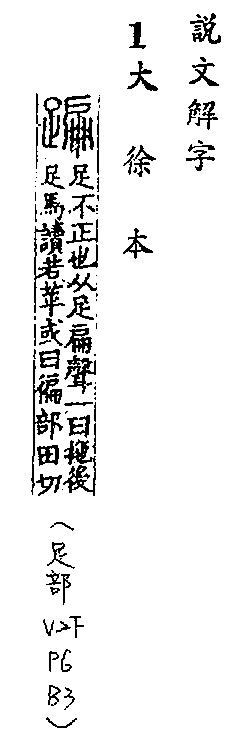 説文解字
1大徐本
蹁足不正也从足扁聲一曰拖後
足馬讀若苹或曰徧部田切
(足部
V.2F
P6
B3)